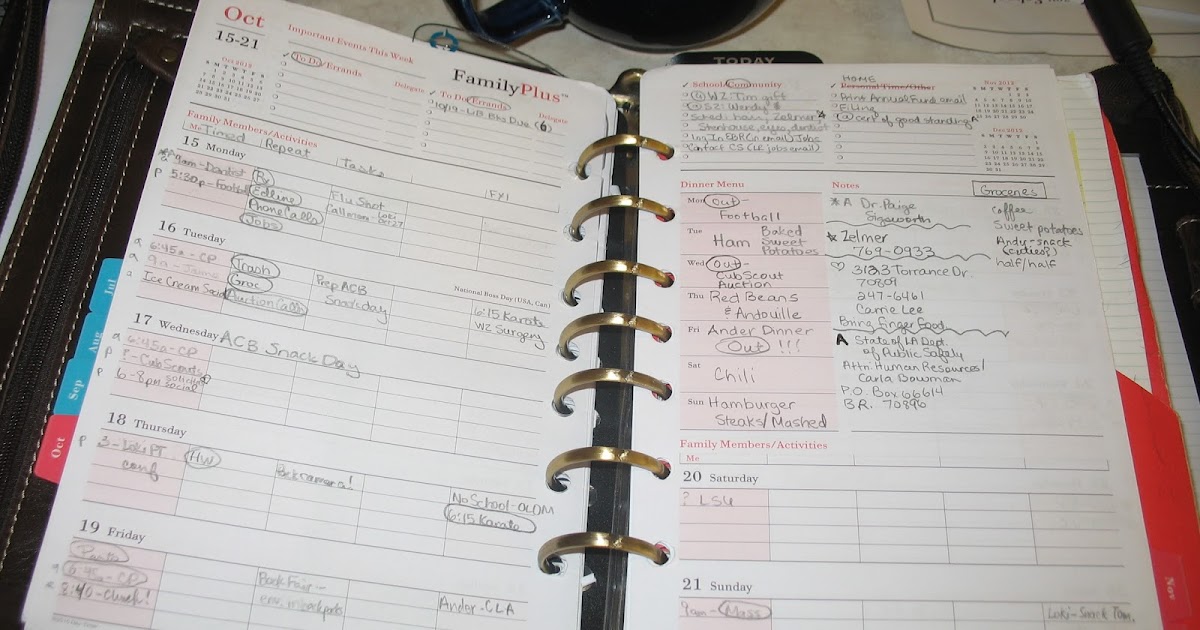 Oct
15-21
Important Events This Week
Oct 2012
S M T W T F S
To Do/Errands
Delegate
FamilyPlus™
To Do/Errands
Delegate
Family Members/Activities
Me Timed
Repeat
Tasks
FYI
15 Monday
9am-Dentist
Rx
P 5:30p-Football
Edline
Phone Calls
Jobs
Flu Shot
Oct 27
16 Tuesday
a 6:45a-CP
Trash
a 9a-Jaime
Groc
Ice Cream Social
Auction Calls
Prep ACB
Snack day
National Boss Day (USA, Can)
6:15 Karate
WZ Surgery
17 Wednesday ACB Snack Day
a 6:45a-CP
P ?-Cub Scouts
P 6-8pm
social
18 Thursday
P 3-Loki PT
conf
HW
No School-OLOM
6:15 Karate
19 Friday
a 6:45a-CP
8:40-Church!
Book Fair-
Ander-CLA
Jul
Aug
Sep
Oct
TODAY
School/Community
WZ: Tim gift
SZ: Wendy $
sched. hair, Zelmer,
Log In EBR (in email) Jobs
Contact CS (LE jobs email)
HOME
Personal Time/Other
Print Annual Fund email
Filing
cert of good standing
Nov 2012
S M T W T F S
Dec 2012
S M T W T F S
Dinner Menu
Mon Out-
Football
Tue Ham Baked
Sweet
Potatoes
Wed Out-
CubScout
Auction
Thu Red Beans
& Andouille
Fri Ander Dinner
Out !!!
Sat Chili
Sun Hamburger
Steaks/Mashed
Notes
Groceries
* A Dr. Paige
Sigsworth
* Zelmer
769-0933
♡ 3123 Torrance Dr.
70809
247-6461
Carrie Lee
Bring Finger Food
A State of LA Dept.
of Public Safety
Attn: Human Resources/
Carla Bowman
P.O. Box 66614
B.R. 70896
coffee
Sweet potatoes
Andy-snack
(cuties?)
half/half
Family Members/Activities
Me
20 Saturday
? LSU
21 Sunday
9am-Mass
Loki-Snack Tom.
Nov